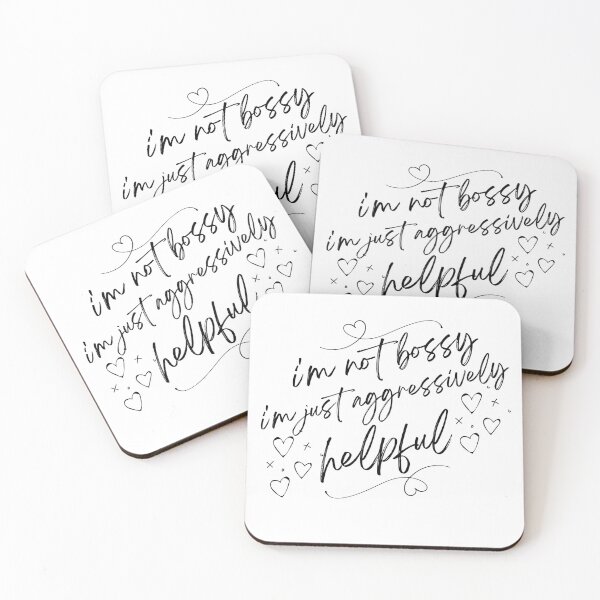 i'm not bossy
i'm just aggressively
helpful
i'm not bossy
i'm just aggressively
helpful
i'm not bossy
i'm just aggressively
helpful
i'm not bossy
i'm just aggressively
helpful